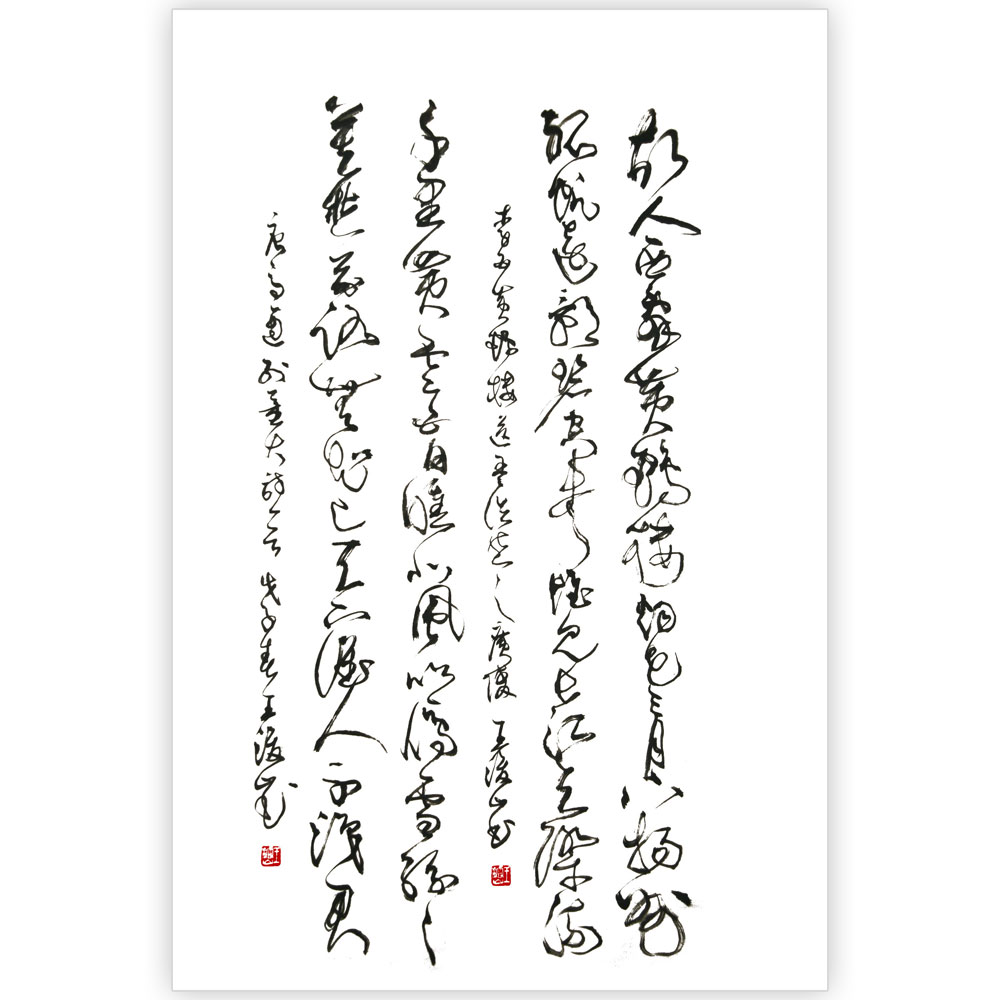 故人西辭黃鶴樓烟花三月下揚州
孤帆遠影碧空盡唯見長江天際流
李白黃鶴樓送孟浩然之廣陵 王
千里黃雲白日曛北風吹雁雪紛紛
莫愁前路無知己天下誰人不識君
唐高適別董大詩 戊子春王